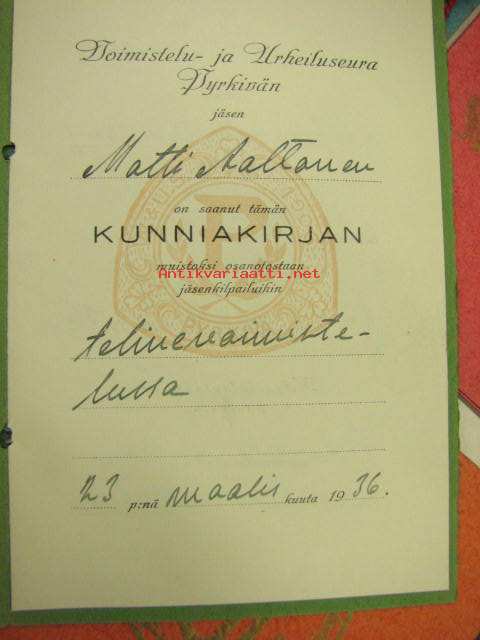 Voimistelu- ja Urheiluseura
Pyrkivän
jäsen
Matti Aaltonen
on saanut tämän
KUNNIAKIRJAN
muistoksi osanotostaan
Antikvariaatti.net
jäsenkilpailuihin
telinevoimiste-
lussa
23 p:nä maalis kuuta 1936.